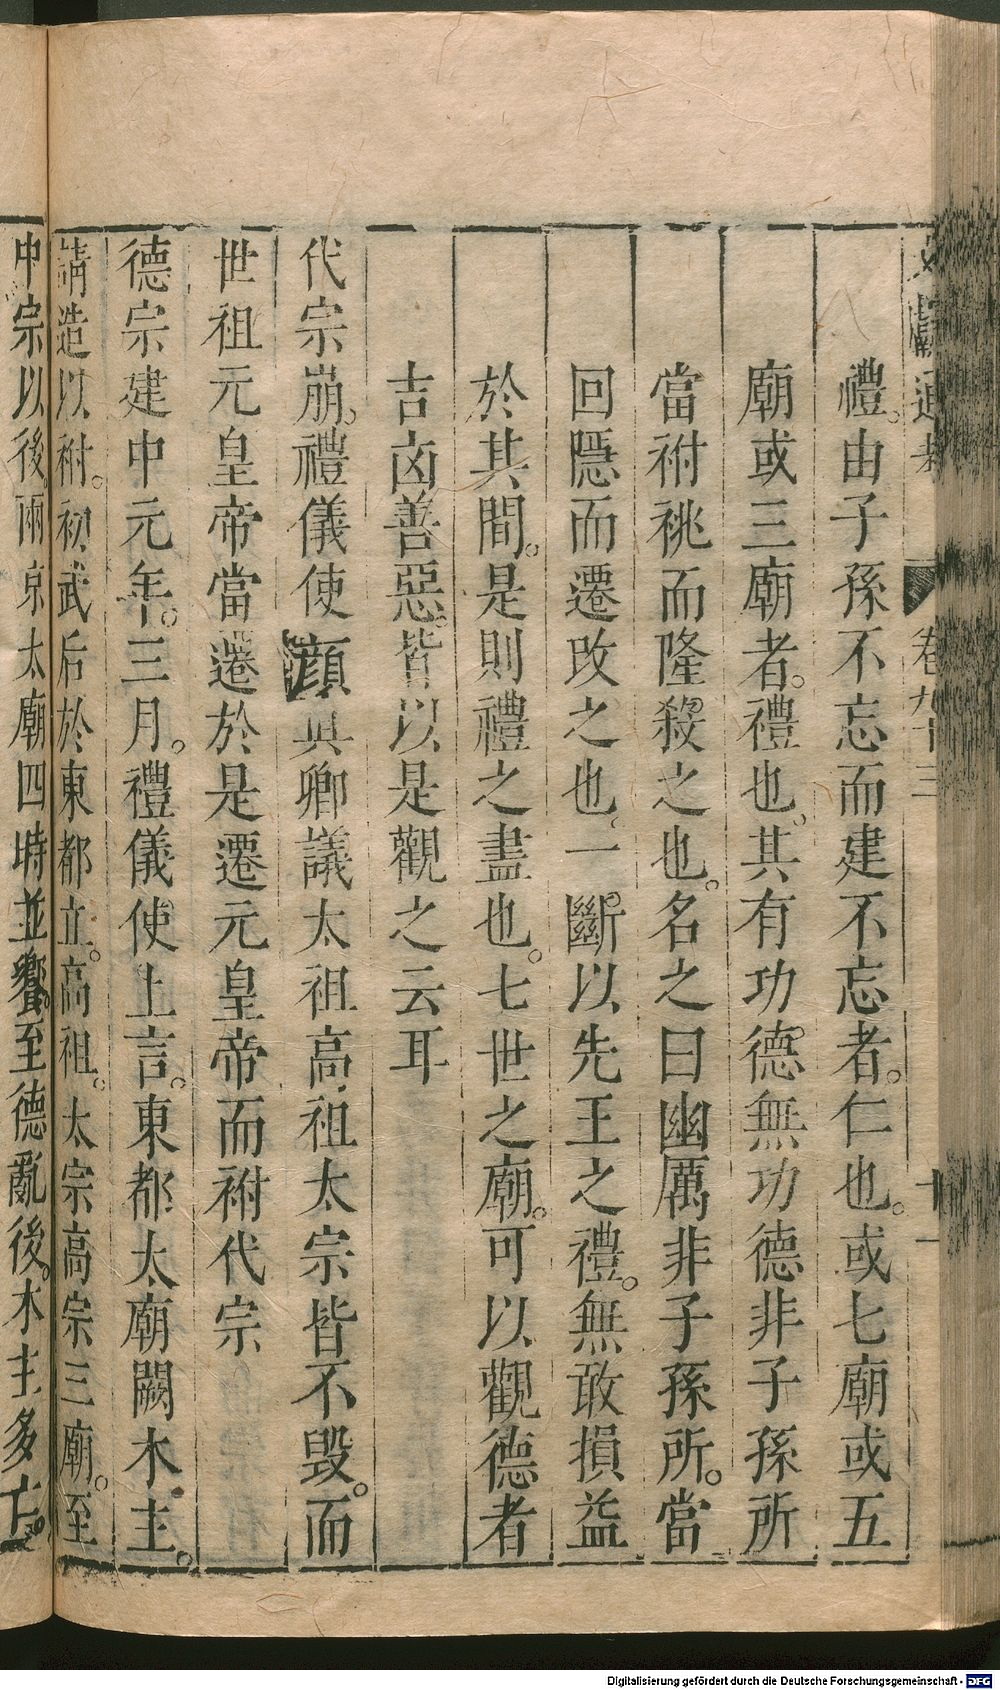 文獻通考 卷九十三 十一
禮。由子孫不忘而建不忘者。仁也。或七廟或五
廟或三廟者。禮也。其有功德無功德非子孫所
當祔祧而隆殺之也。名之曰幽厲非子孫所。當
回隱而遷改之也。一斷以先王之禮。無敢損益
於其間。是則禮之盡也。七世之廟。可以觀德者
吉凶善惡。皆以是觀之云耳
代宗崩。禮儀使顔眞卿議太祖高祖太宗皆不毀。而
世祖元皇帝當遷於是遷元皇帝而祔代宗
德宗建中元年。三月。禮儀使上言。東都太廟闕木主。
請造以祔。初武后於東都立。高祖。太宗高宗三廟。至
中宗以後。兩京太廟四時並饗。至德亂後。木主多亡。
Digitalisierung gefördert durch die Deutsche Forschungsgemeinschaft - DFG